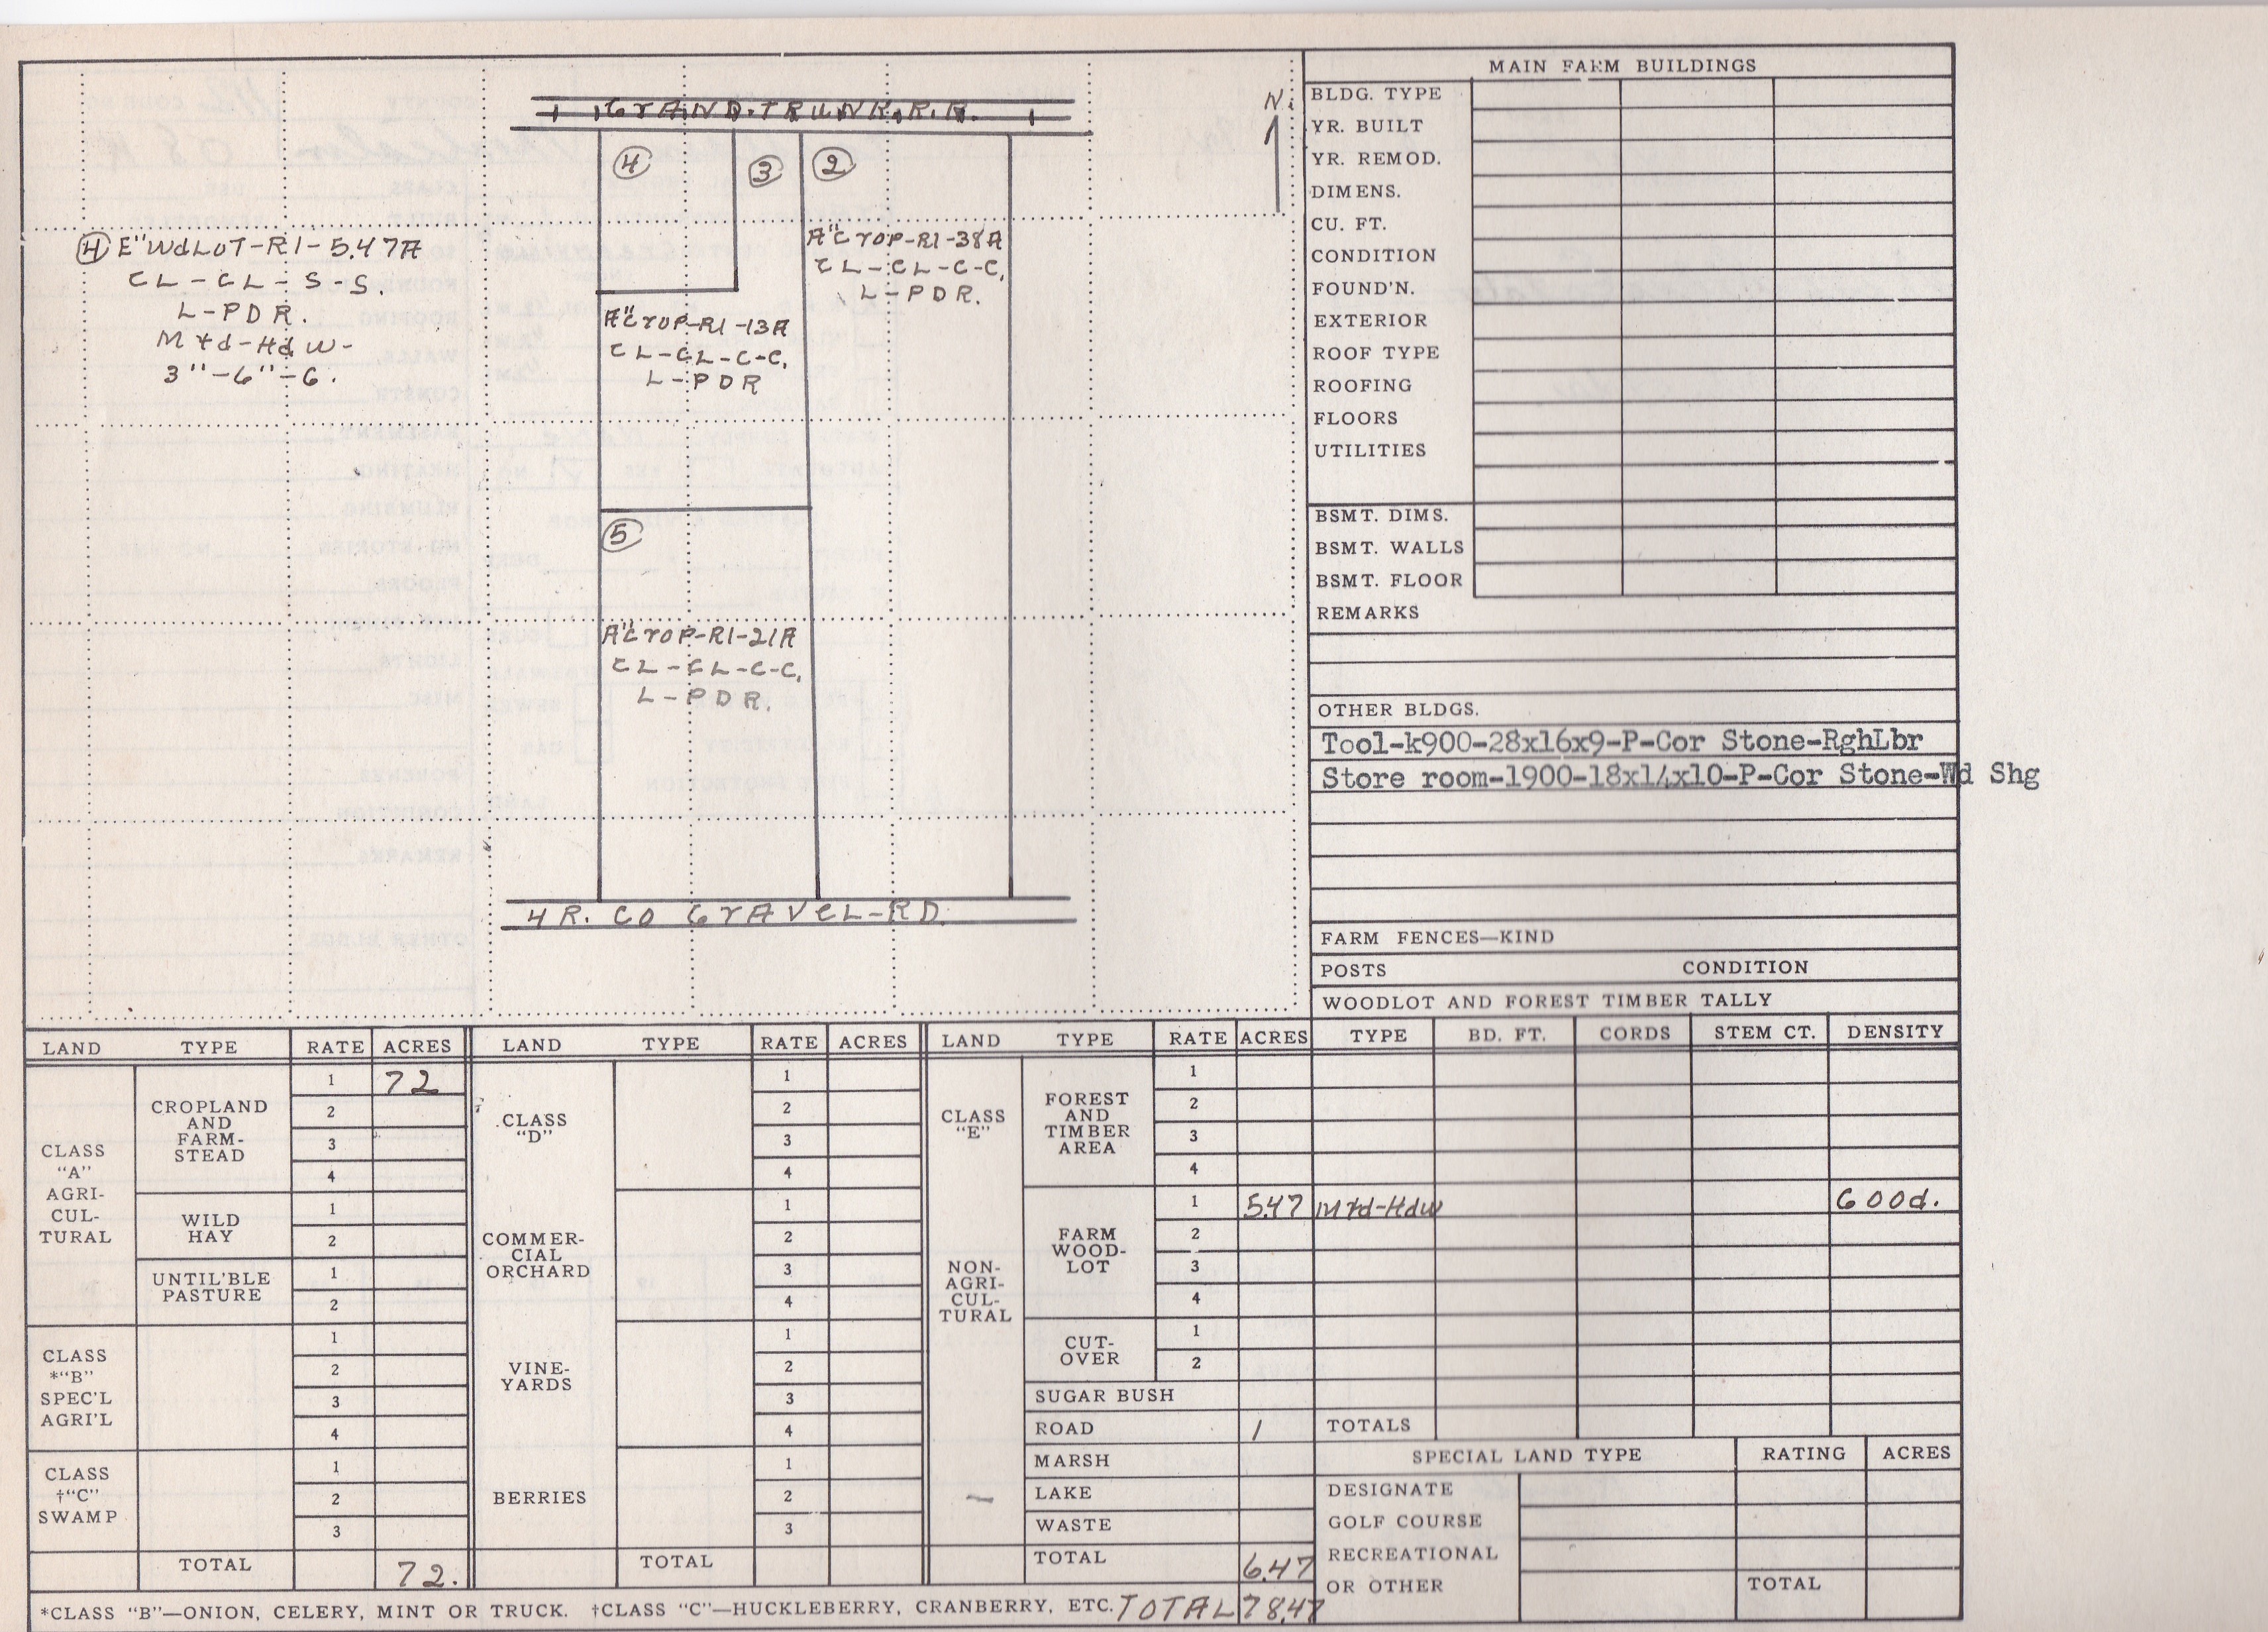 GrAND.TRUNK.R.R.
N.
4
3
2
4 E"WdLOT-R1-5.47A
CL-CL-S-S.
L-PDR.
Mrd-Hdw-
3"-6"-G.
A"CrOP-R1-38A
CL-CL-C-C.
L-PDR.
A"CrOP-R1-13A
CL-CL-C-C.
L-PDR
5
A"CrOP-R1-21A
CL-CL-C-C.
L-PDR.
4 R. CO GrAVEL-RD.
MAIN FARM BUILDINGS
BLDG. TYPE
YR. BUILT
YR. REMOD.
DIMENS.
CU. FT.
CONDITION
FOUND'N.
EXTERIOR
ROOF TYPE
ROOFING
FLOORS
UTILITIES
BSMT. DIMS.
BSMT. WALLS
BSMT. FLOOR
REMARKS
OTHER BLDGS.
Tool-k900-28x16x9-P-Cor Stone-RghLbr
Store room-1900-18x14x10-P-Cor Stone-Wd Shg
FARM FENCES—KIND
POSTS CONDITION
WOODLOT AND FOREST TIMBER TALLY
LAND TYPE RATE ACRES LAND TYPE RATE ACRES LAND TYPE RATE ACRES TYPE BD. FT. CORDS STEM CT. DENSITY
CLASS
"A"
AGRI-
CUL-
TURAL
CROPLAND
AND
FARM-
STEAD
1 72
2
3
4
WILD
HAY
1
2
UNTIL'BLE
PASTURE
1
2
CLASS
*"B"
SPEC'L
AGRI'L
1
2
3
4
CLASS
†"C"
SWAMP
1
2
3
TOTAL 72.
CLASS
"D"
1
2
3
4
COMMER-
CIAL
ORCHARD
1
2
3
4
VINE-
YARDS
1
2
3
4
BERRIES
1
2
3
TOTAL
CLASS
"E"
NON-
AGRI-
CUL-
TURAL
FOREST
AND
TIMBER
AREA
1
2
3
4
FARM
WOOD-
LOT
1 5.47 Mrd-Hdw Good.
2
3
4
CUT-
OVER
1
2
SUGAR BUSH
ROAD 1
MARSH
LAKE
WASTE
TOTAL 6.47
TOTALS
SPECIAL LAND TYPE RATING ACRES
DESIGNATE
GOLF COURSE
RECREATIONAL
OR OTHER
TOTAL
*CLASS "B"—ONION, CELERY, MINT OR TRUCK. †CLASS "C"—HUCKLEBERRY, CRANBERRY, ETC. TOTAL 78.47